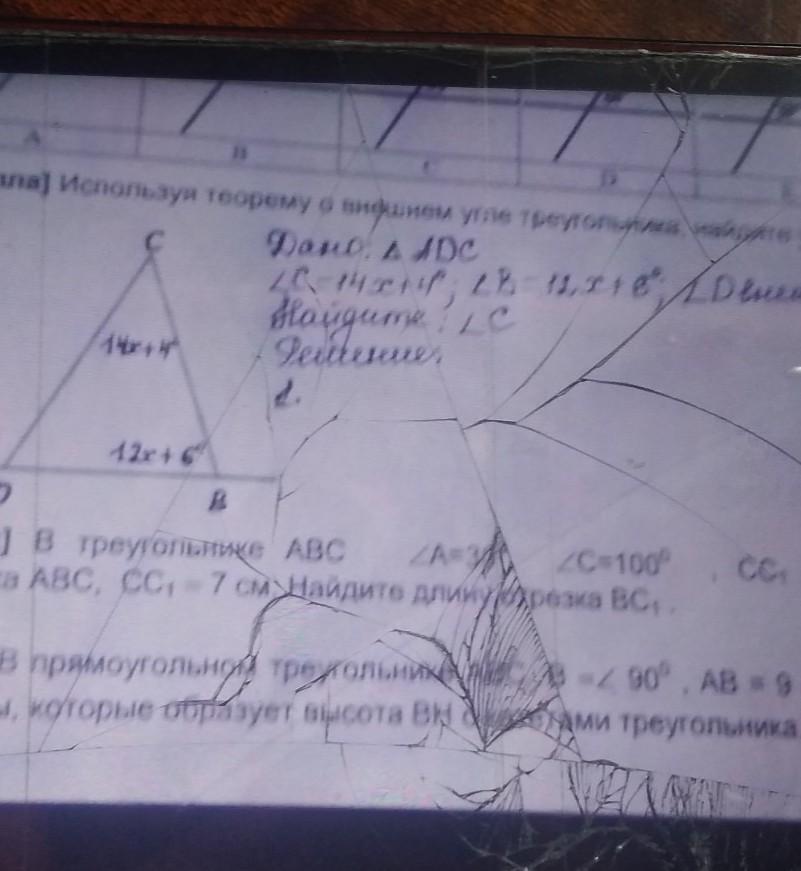 A B C D E
Используя теорему о внешнем угле треугольника, найдите
C Дано: Δ ADC
14x+4° Найдите: ∠C
Решение:
1.
12x+6°
B
] В треугольнике ABC ∠C=100⁰ , CC₁
ABC, CC₁ = 7 см. Найдите длину отрезка BC₁.
В прямоугольном треугольнике =∠ 90⁰, AB = 9
которые образует высота BH с катетами треугольника